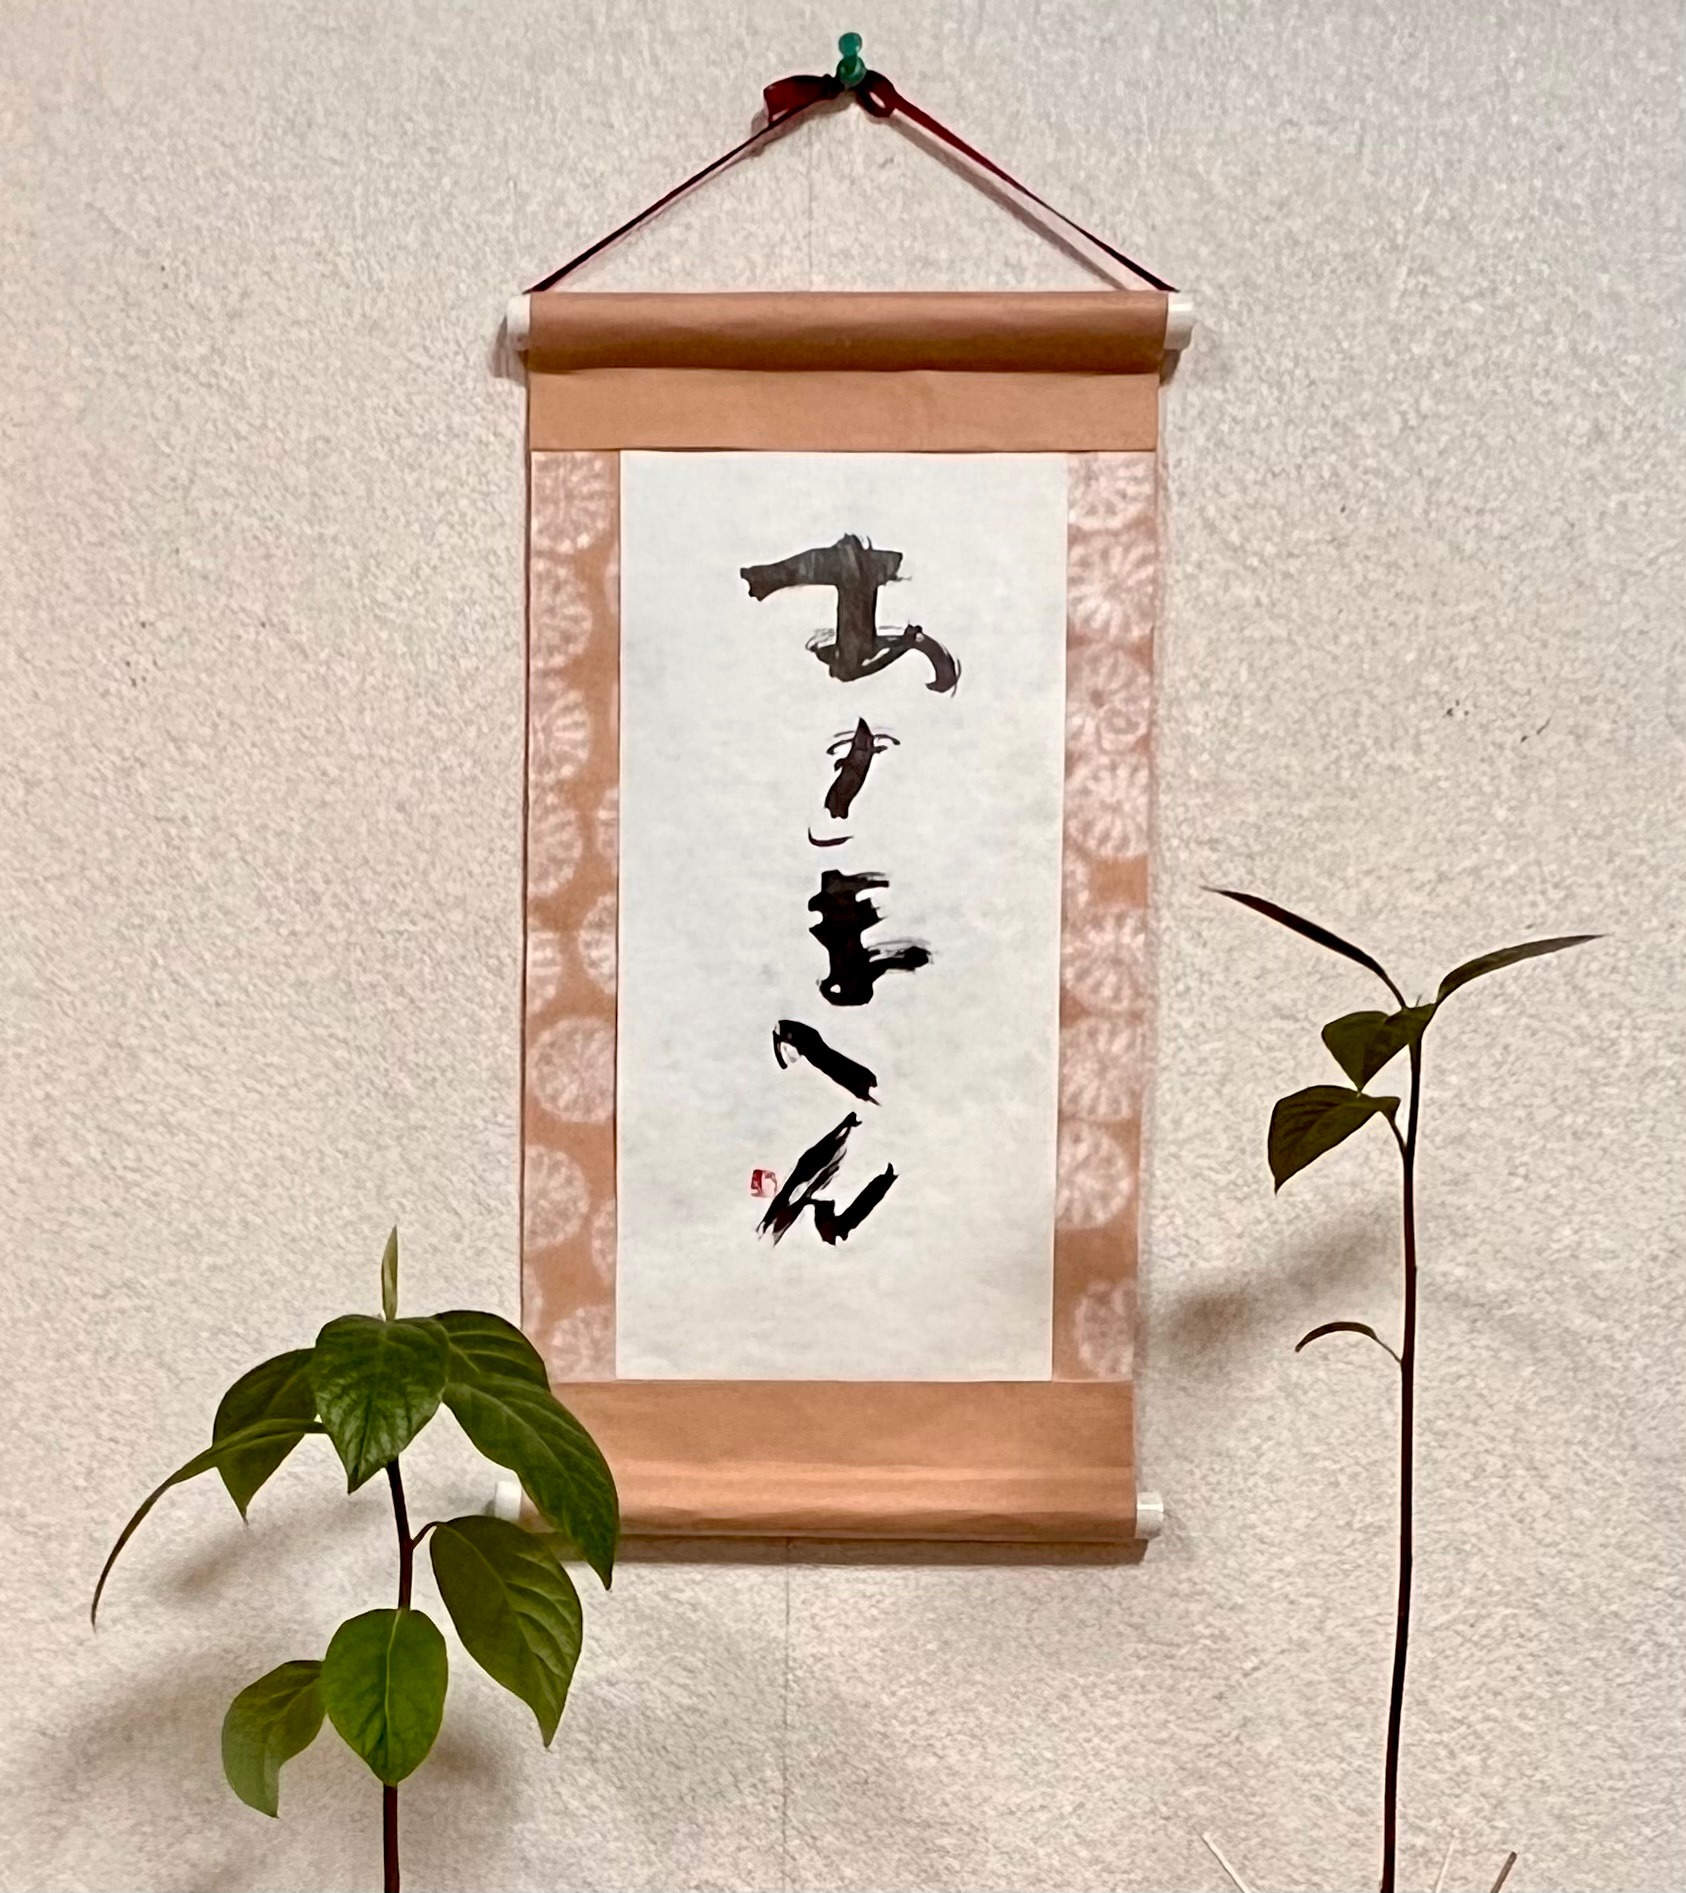 あきまへん